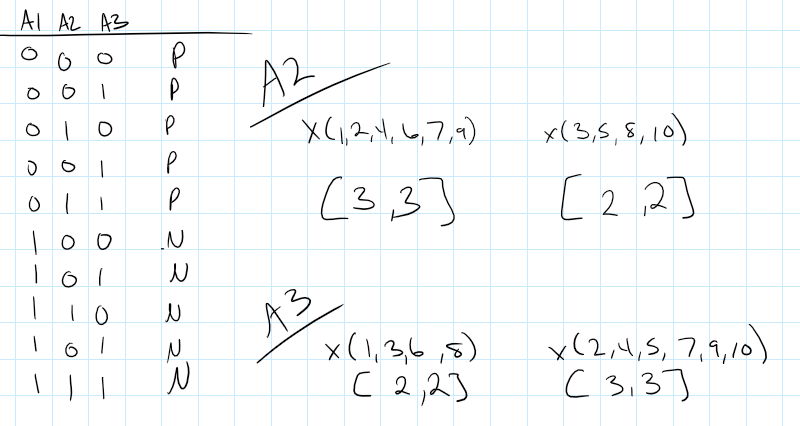 A1 A2 A3
0 0 0 P
0 0 1 P
0 1 0 P
0 0 1 P
0 1 1 P
1 0 0 N
1 0 1 N
1 1 0 N
1 0 1 N
1 1 1 N
A2
x(1,2,4,6,7,9) x(3,5,8,10)
[3,3] [2,2]
A3
x(1,3,6,8) x(2,4,5,7,9,10)
[2,2] [3,3]